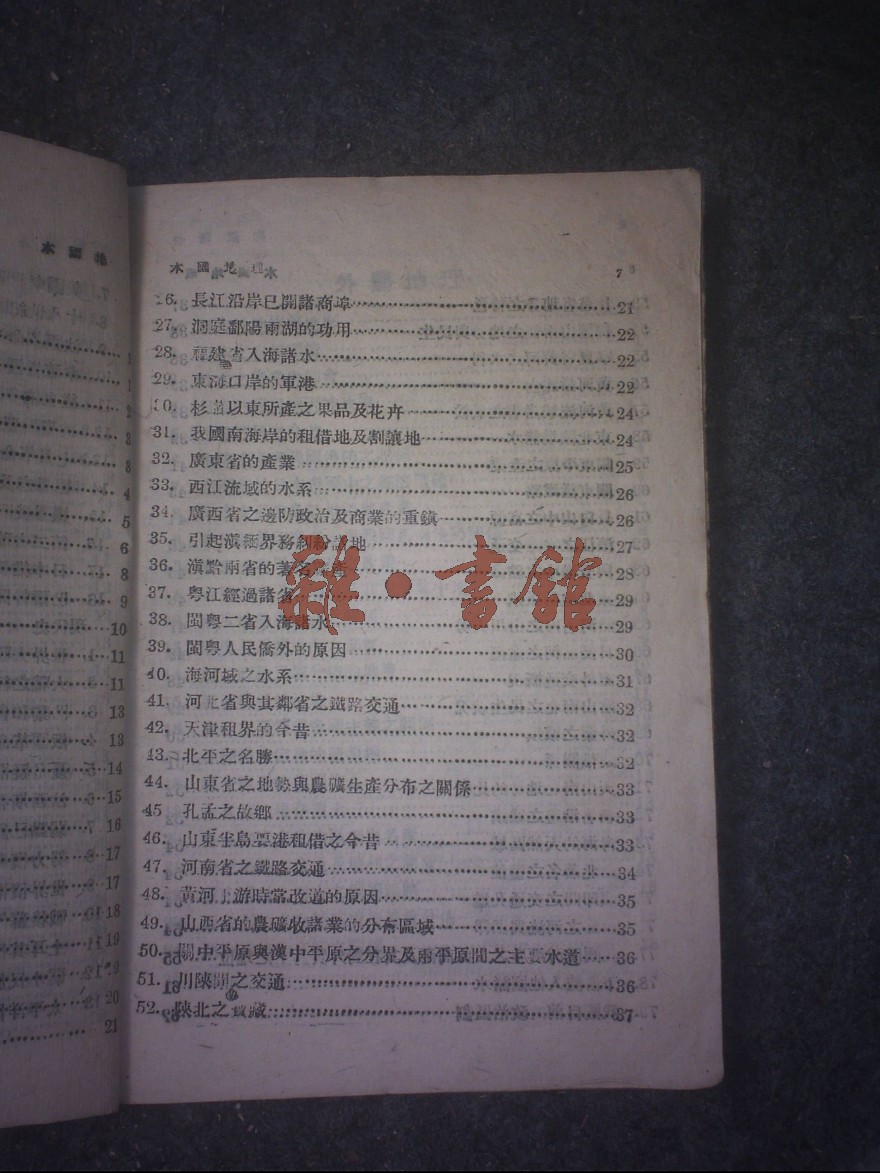 本國地
1
1
2
3
3
4
5
6
8
9
10
11
11
13
13
14
15
16
17
17
18
19
19
20
21
本國地理 7
26. 長江沿岸已開諸商埠 21
27. 洞庭鄱陽兩湖的功用 22
28. 福建省入海諸水 22
29. 東海口岸的軍港 22
30. 杉嶺以東所產之果品及花卉 24
31. 我國南海岸的租借地及割讓地 24
32. 廣東省的產業 25
33. 西江流域的水系 26
34. 廣西省之邊防政治及商業的重鎮 26
35. 引起滇緬界務糾紛諸地 27
36. 滇黔兩省的著名 28
37. 粵江經過諸省 29
38. 閩粵二省入海諸水 29
39. 閩粵人民僑外的原因 30
40. 海河域之水系 31
41. 河北省與其鄰省之鐵路交通 32
42. 天津租界的今昔 32
43. 北平之名勝 32
44. 山東省之地勢與農礦生產分布之關係 33
45 孔孟之故鄉 33
46. 山東半島要港租借之今昔 33
47. 河南省之鐵路交通 34
48. 黃河上游時常改道的原因 35
49. 山西省的農礦牧諸業的分布區域 35
50. 關中平原與漢中平原之分界及兩平原間之主要水道 36
51. 川陝間之交通 36
52. 陝北之寶藏 37
雜·書館